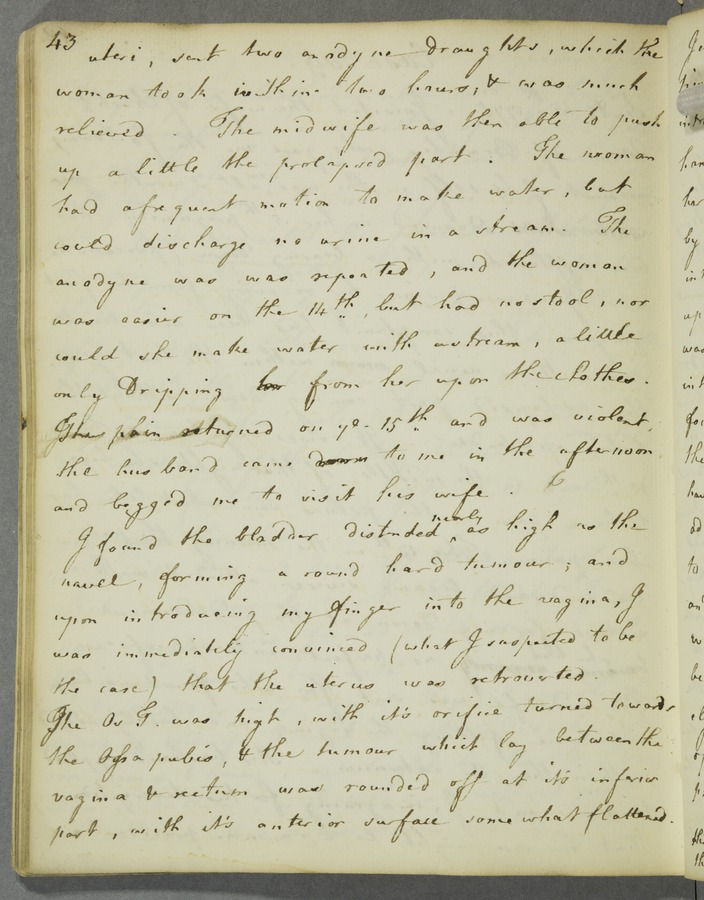 43
uteri, sent two anodyne draughts, which the
woman took within two hours, & was much
relieved. The midwife was then able to push
up a little the prolapsed part. The woman
had a frequent motion to make water, but
could discharge no urine in a stream. The
anodyne was was repeated, and the woman
was easier on the 14th, but had no stool, nor
could she make water with a stream, a little
only Dripping from her upon the clothes.
The pain returned on ye 15th and was violent,
the husband came to me in the afternoon
and begged me to visit his wife.
I found the bladder distnded nearly as high as the
navel, forming a round hard tumour; and
upon introducing my finger into the vagina, I
was immediately convinced (what I suspected to be
the case) that the uterus was retroverted.
The Os T. was high, with it's orifice turned towards
the Ossa pubis, & the tumour which lay between the
vagina & rectum was rounded off at it's inferior
part, with it's anterior surface somewhat flattened.